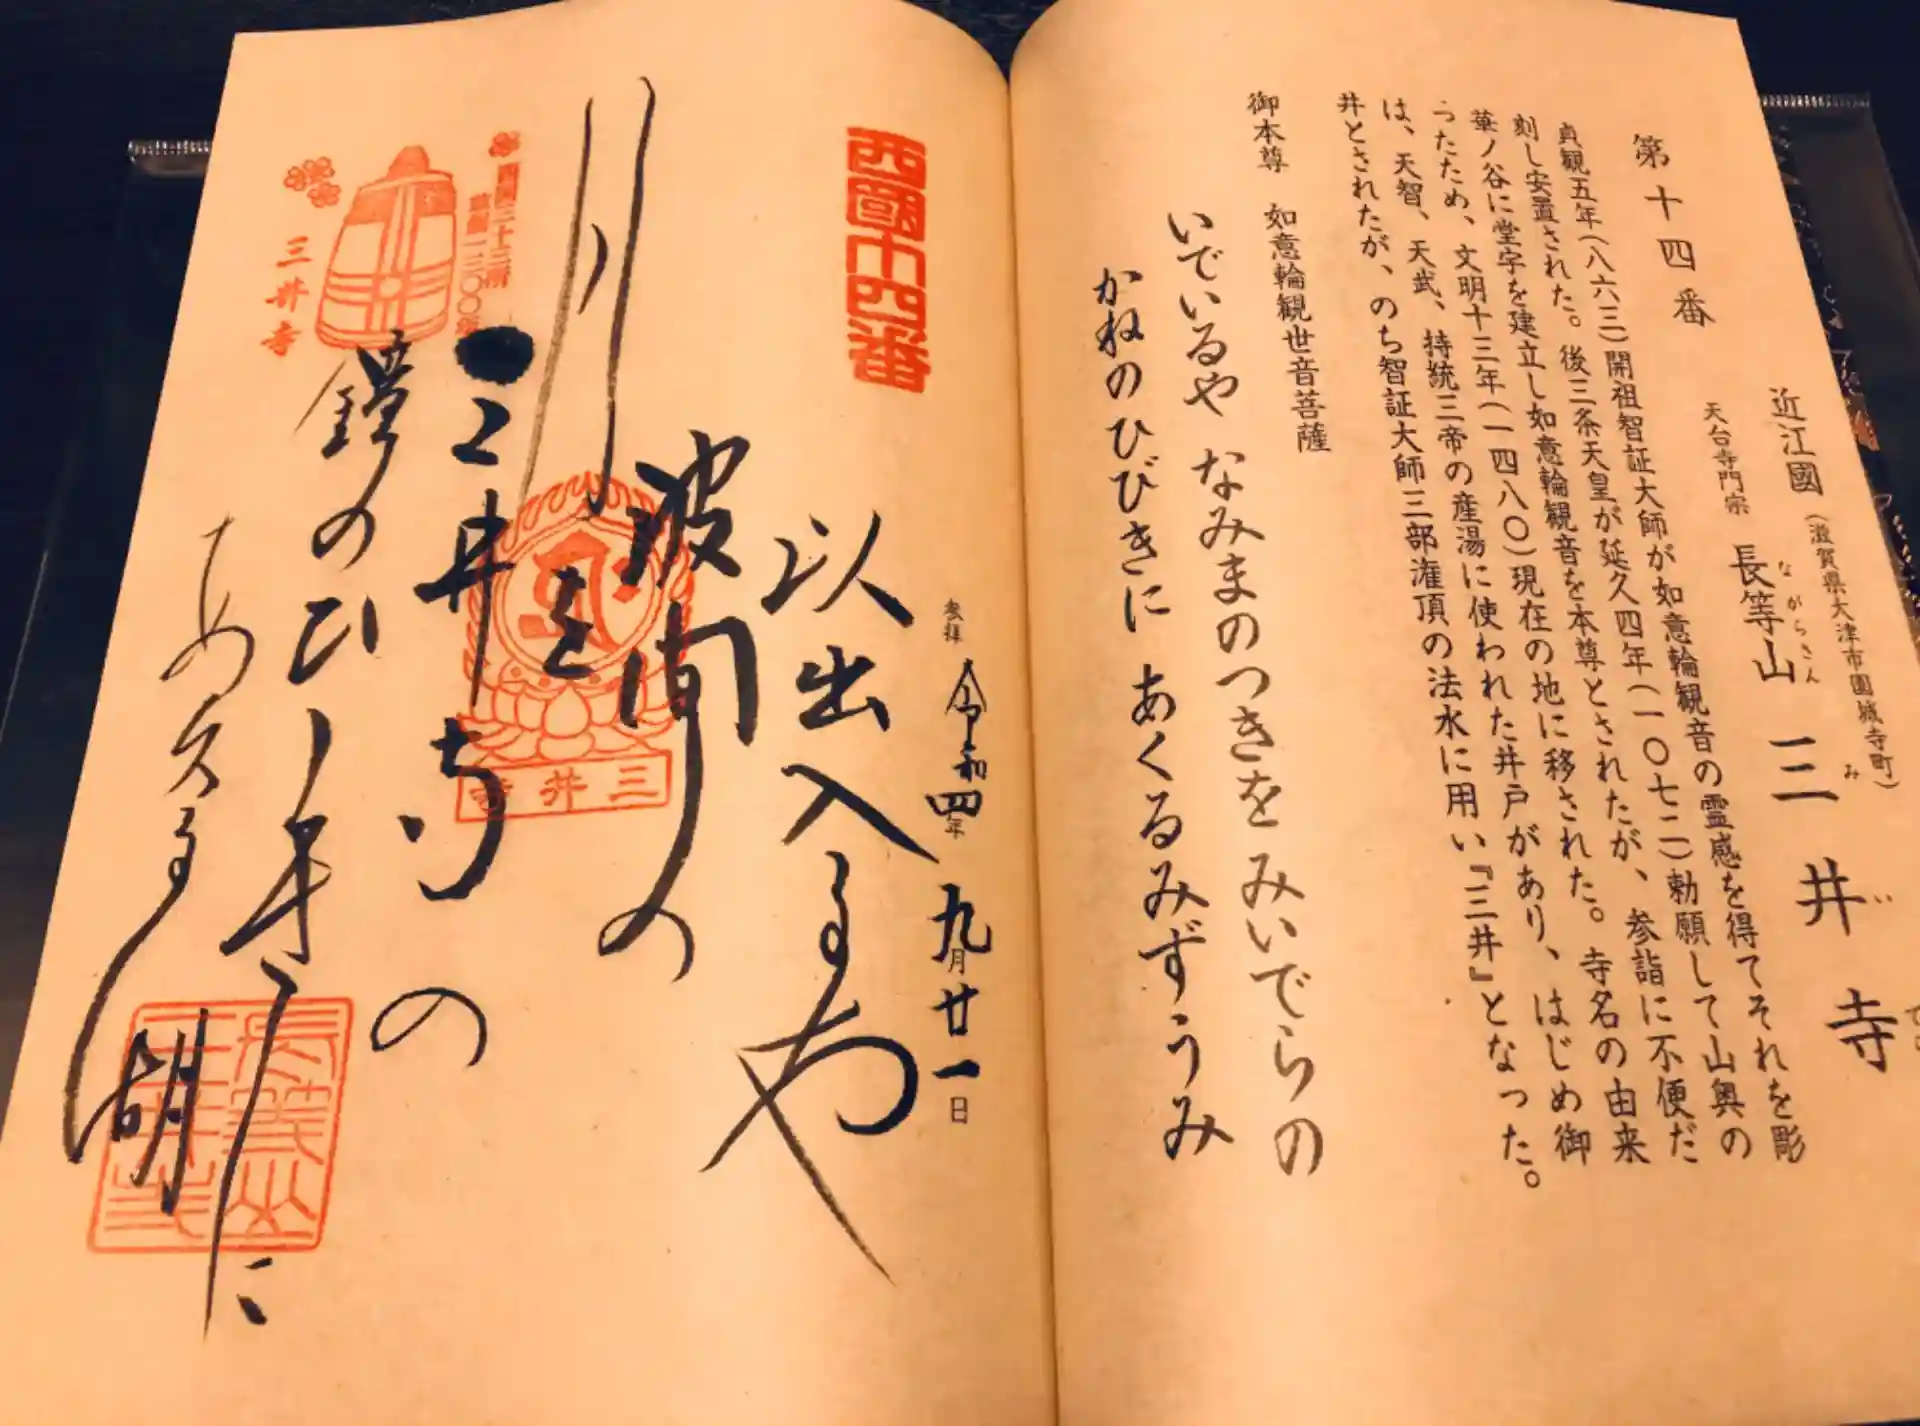 第十四番
近江國（滋賀県大津市園城寺町）
天台寺門宗 長等山 三井寺
ながらさん み い
貞観五年（八六三）開祖智証大師が如意輪観音の霊感を得てそれを彫
刻し安置された。後三条天皇が延久四年（一〇七二）勅願して山奥の
華ノ谷に堂宇を建立し如意輪観音を本尊とされたが、参詣に不便だ
ったため、文明十三年（一四八〇）現在の地に移された。寺名の由来
は、天智、天武、持統三帝の産湯に使われた井戸があり、はじめ御
井とされたが、のち智証大師三部潅頂の法水に用い『三井』となった。
御本尊 如意輪観世音菩薩
いでいるや なみまのつきを みいでらの
かねのひびきに あくるみずうみ
参拝 令和四年九月廿一日
西國十四番
以出入るや
波間の
月を
三井寺の
鐘のひゞきに
あくる湖
西国三十三所
草創一三〇〇年
三井寺
三井寺
長等山
三井寺